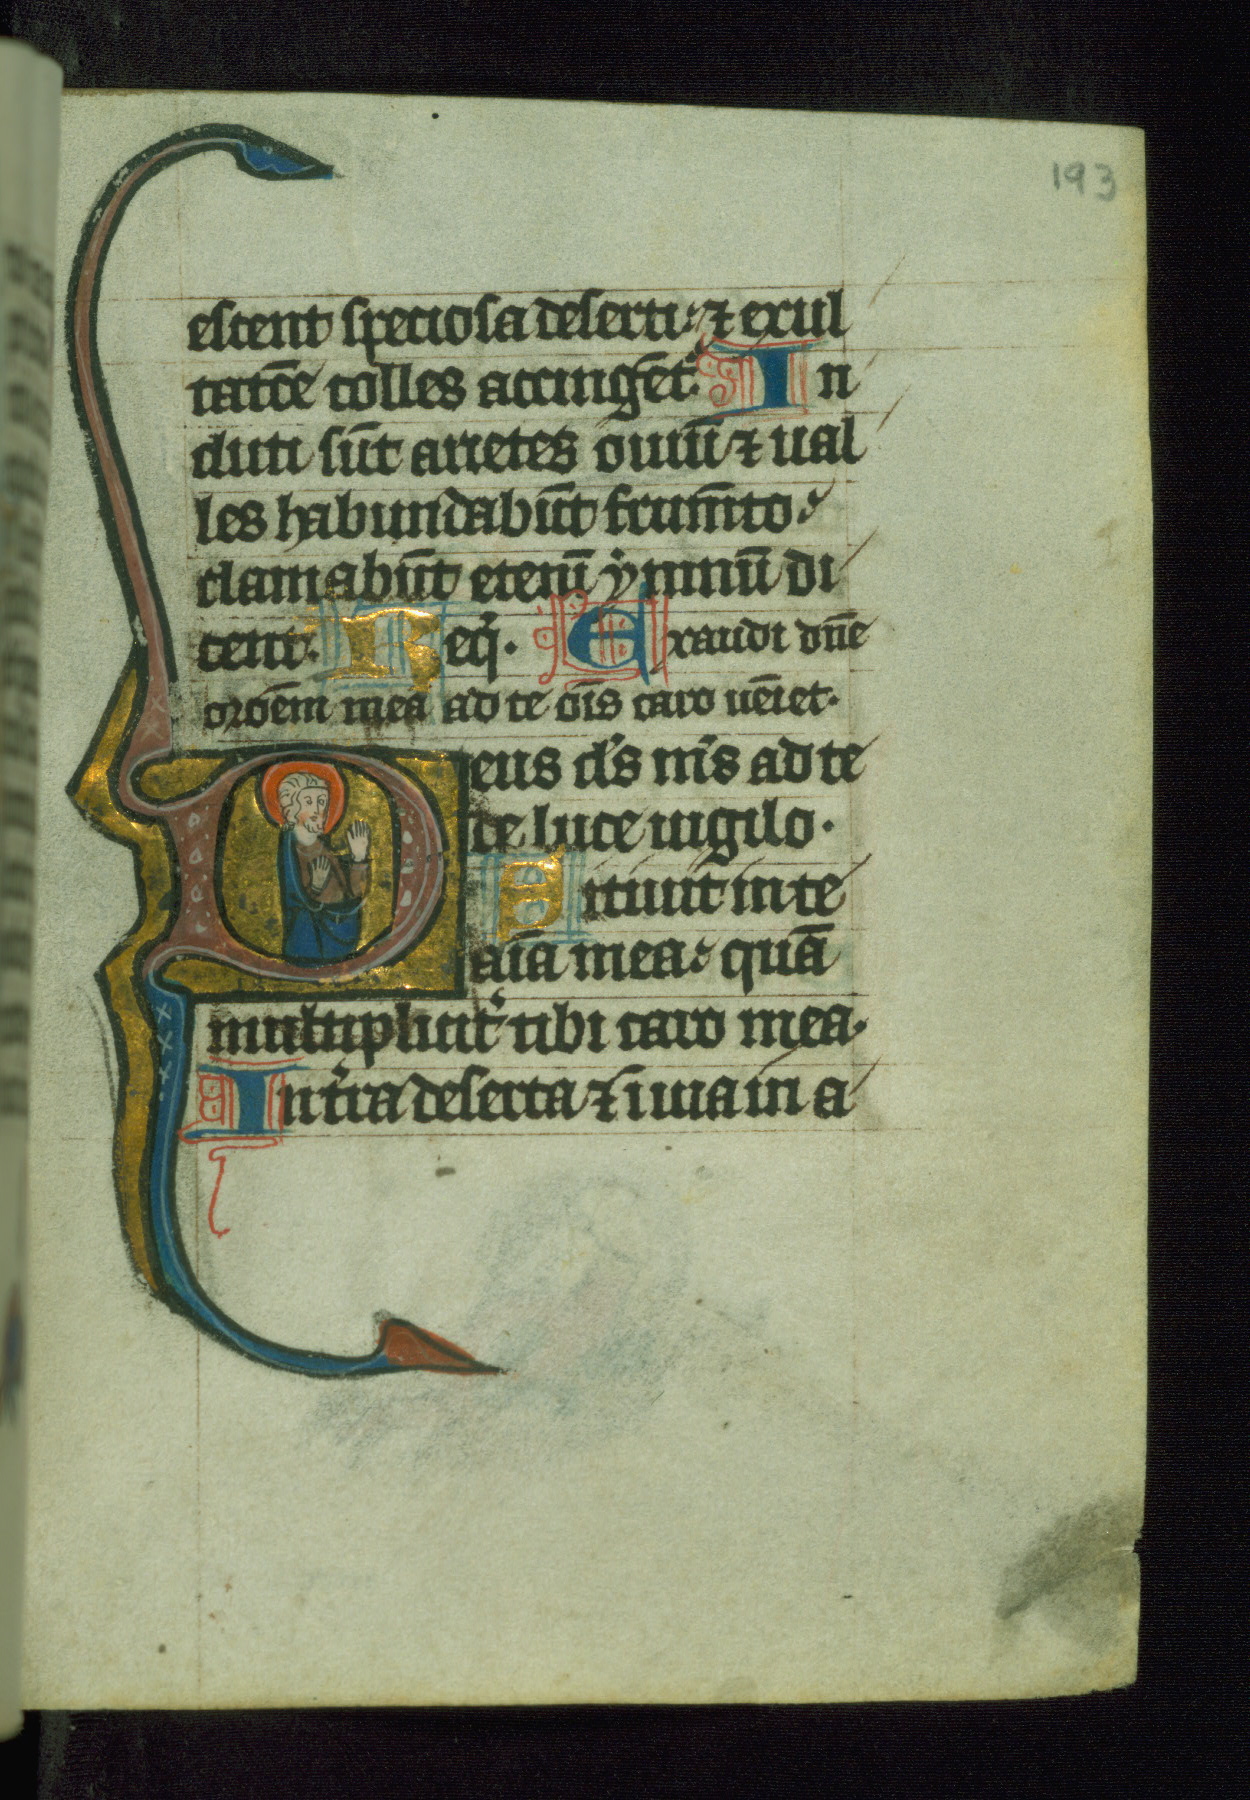 193
escent speciosa deserti: ⁊ exul
tatōe colles accingēt᷑. In
duti sūt arietes ouiū ⁊ ual
les habundabūt frumīto:
clamabūt etenī ẏmnū di
cent. Req̇. Exaudi dn̄e
oroēm meā ad te ōis caro ueīet.
Deus ds̄ ms̄ ad te
de luce uigilo.
Sitiuit in te
aīa mea: quā
multipliciť tibi caro mea.
In tr̄ra deserta ⁊ īuia in a